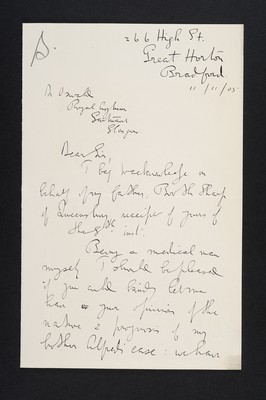 S.
266 High St.
Great Horton
Bradford.
11/11/03
Dr Oswald
Royal Asylum
Gartnavel
Glasgow
Dear Sir,
I beg to acknowledge on
behalf of my father, Booth Sharp
of Queensbury, receipt of yours of
the 9th inst.
Being a medical man
myself I should be pleased
if you could kindly let me
have your opinion of the
nature & prognosis of my
brother Alfred's case: we have